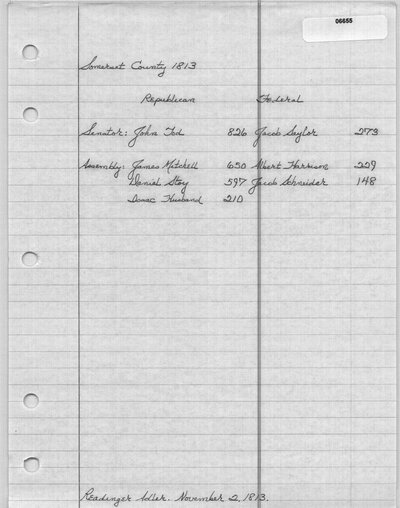 06655
Somerset County 1813
Republican Federal
Senator: John Tod 826 Jacob Saylor 273
Assembly: James Mitchell 650 Albert Harrison 229
Daniel Stoy 597 Jacob Schneider 148
Isaac Husband 210
Readinger Adler. November 2, 1813.